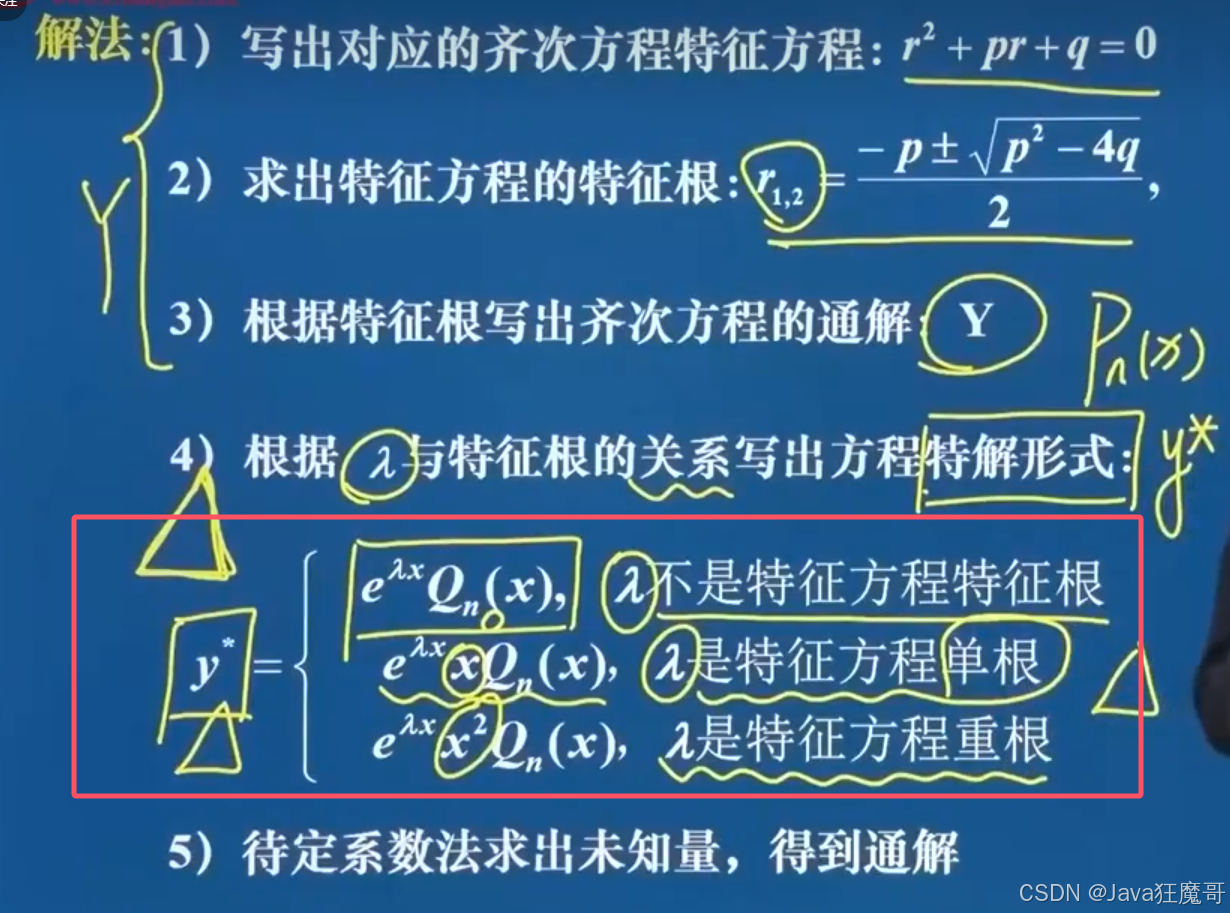 解法:
1）写出对应的齐次方程特征方程：r² + pr + q = 0
2）求出特征方程的特征根：r₁,₂ = (− p ± √(p² − 4q)) / 2，
Y
3）根据特征根写出齐次方程的通解：Y
Pn(x)
4）根据 λ 与特征根的关系写出方程特解形式：
y*
y* = {
e^{λx} Qₙ(x), λ不是特征方程特征根
e^{λx} xQₙ(x), λ是特征方程单根
e^{λx} x² Qₙ(x), λ是特征方程重根
5）待定系数法求出未知量，得到通解
CSDN @Java狂魔哥